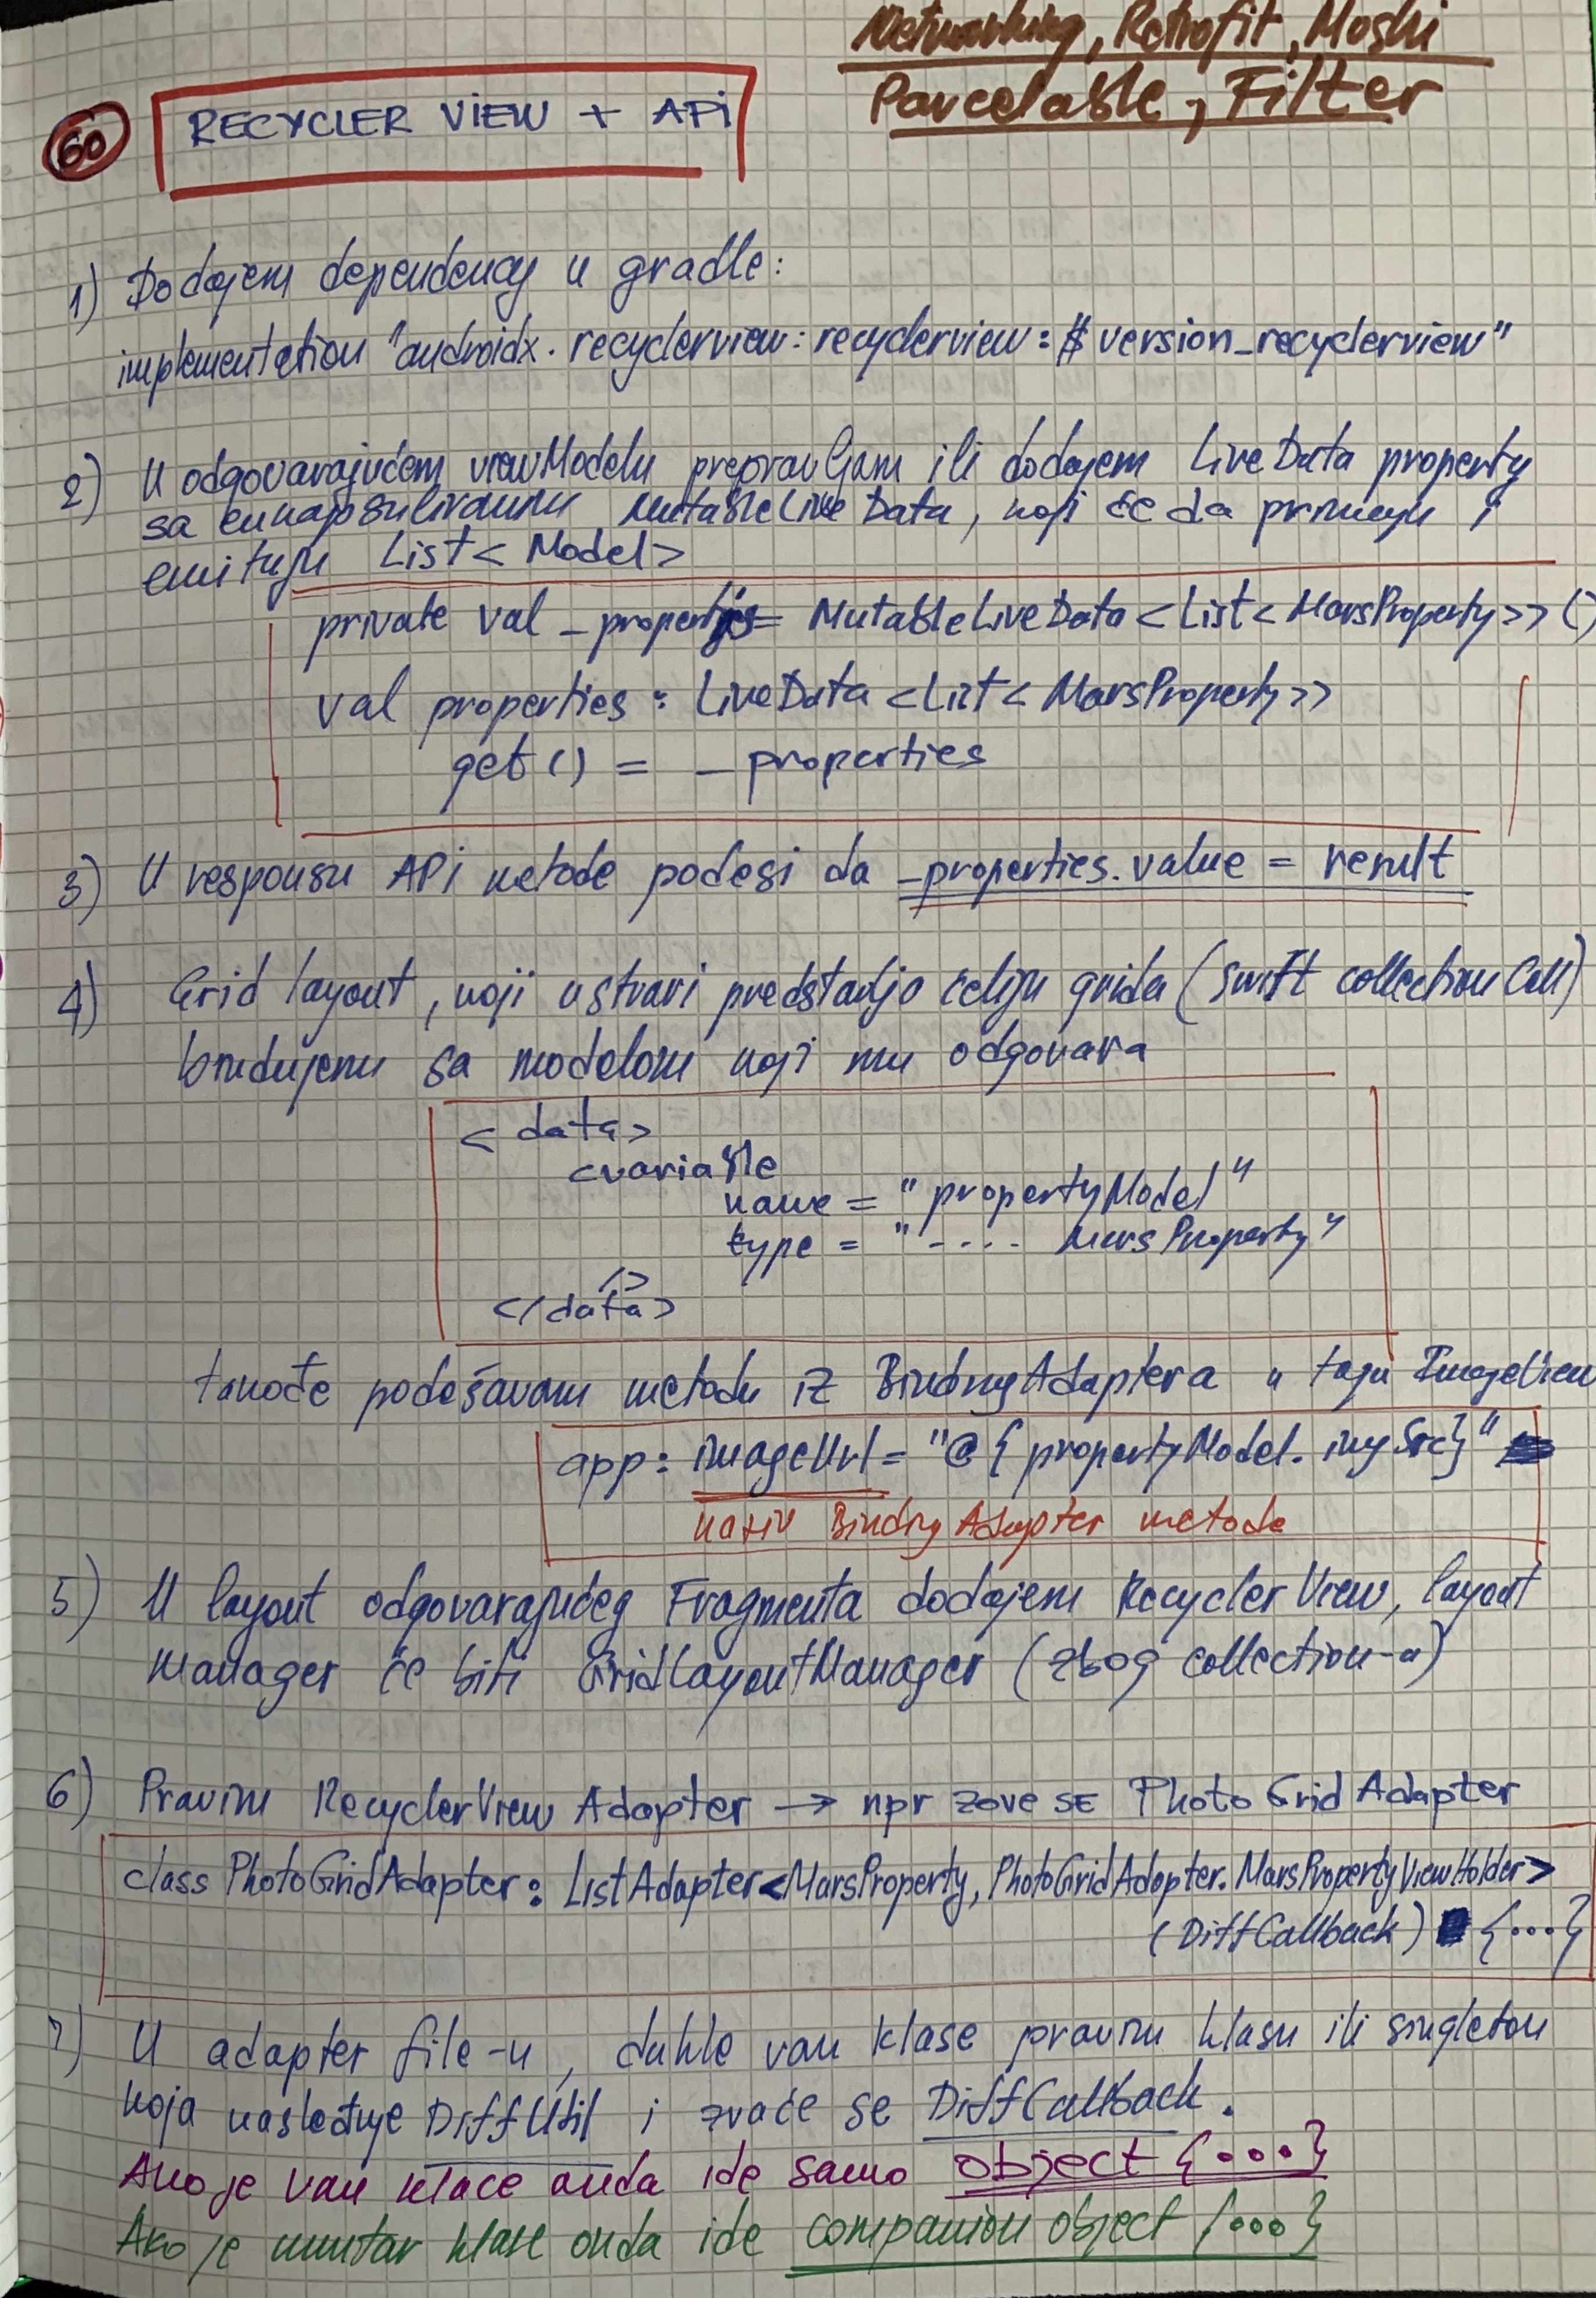 Networking, Retrofit, Moshi
Parcelable, Filter
60
RECYCLER VIEW + API
1) Dodajem dependency u gradle:
implementation "androidx.recyclerview:recyclerview:$version_recyclerview"
2) U odgovarajućem viewModelu prepravljam ili dodajem LiveData property
sa enkapsuliranim MutableLiveData, koji će da prima i
emituje List<Model>
private val _properties = MutableLiveData<List<MarsProperty>>()
val properties : LiveData<List<MarsProperty>>
get() = _properties
3) U responsu API metode podesi da _properties.value = result
4) Grid layout, koji ustvari predstavlja ćeliju grida (Swift collectionCell)
bindujem sa modelom koji mu odgovara
<data>
<variable
name = "propertyModel"
type = "---- MarsProperty"
/>
</data>
takođe podešavam metodu iz BindingAdaptera u tagu ImageView
app: imageUrl = "@{propertyModel.imgSrc}"
naziv BindingAdapter metode
5) U layout odgovarajućeg Fragmenta dodajem RecyclerView, layout
manager će biti GridLayoutManager (zbog collection-a)
6) Pravim RecyclerView Adapter → npr zove se PhotoGridAdapter
class PhotoGridAdapter : ListAdapter<MarsProperty, PhotoGridAdapter.MarsPropertyViewHolder>
(DiffCallback) {...}
7) U adapter file-u, dakle van klase pravim klasu ili singleton
koja nasleđuje DiffUtil i zvaće se DiffCallback.
Ako je van klase onda ide samo object {...}
Ako je unutar klase onda ide companion object {...}